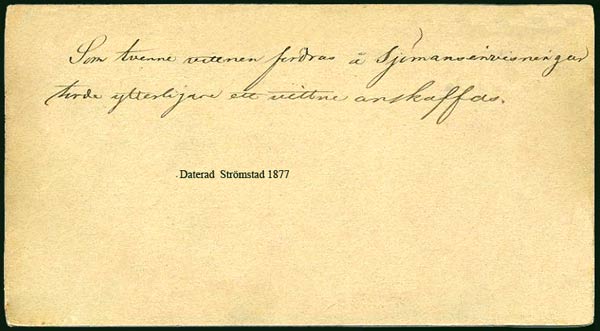 Som tvenne vittnen fordras å Sjömansinvisningar
torde ytterligare ett vittne anskaffas.
Daterad Strömstad 1877